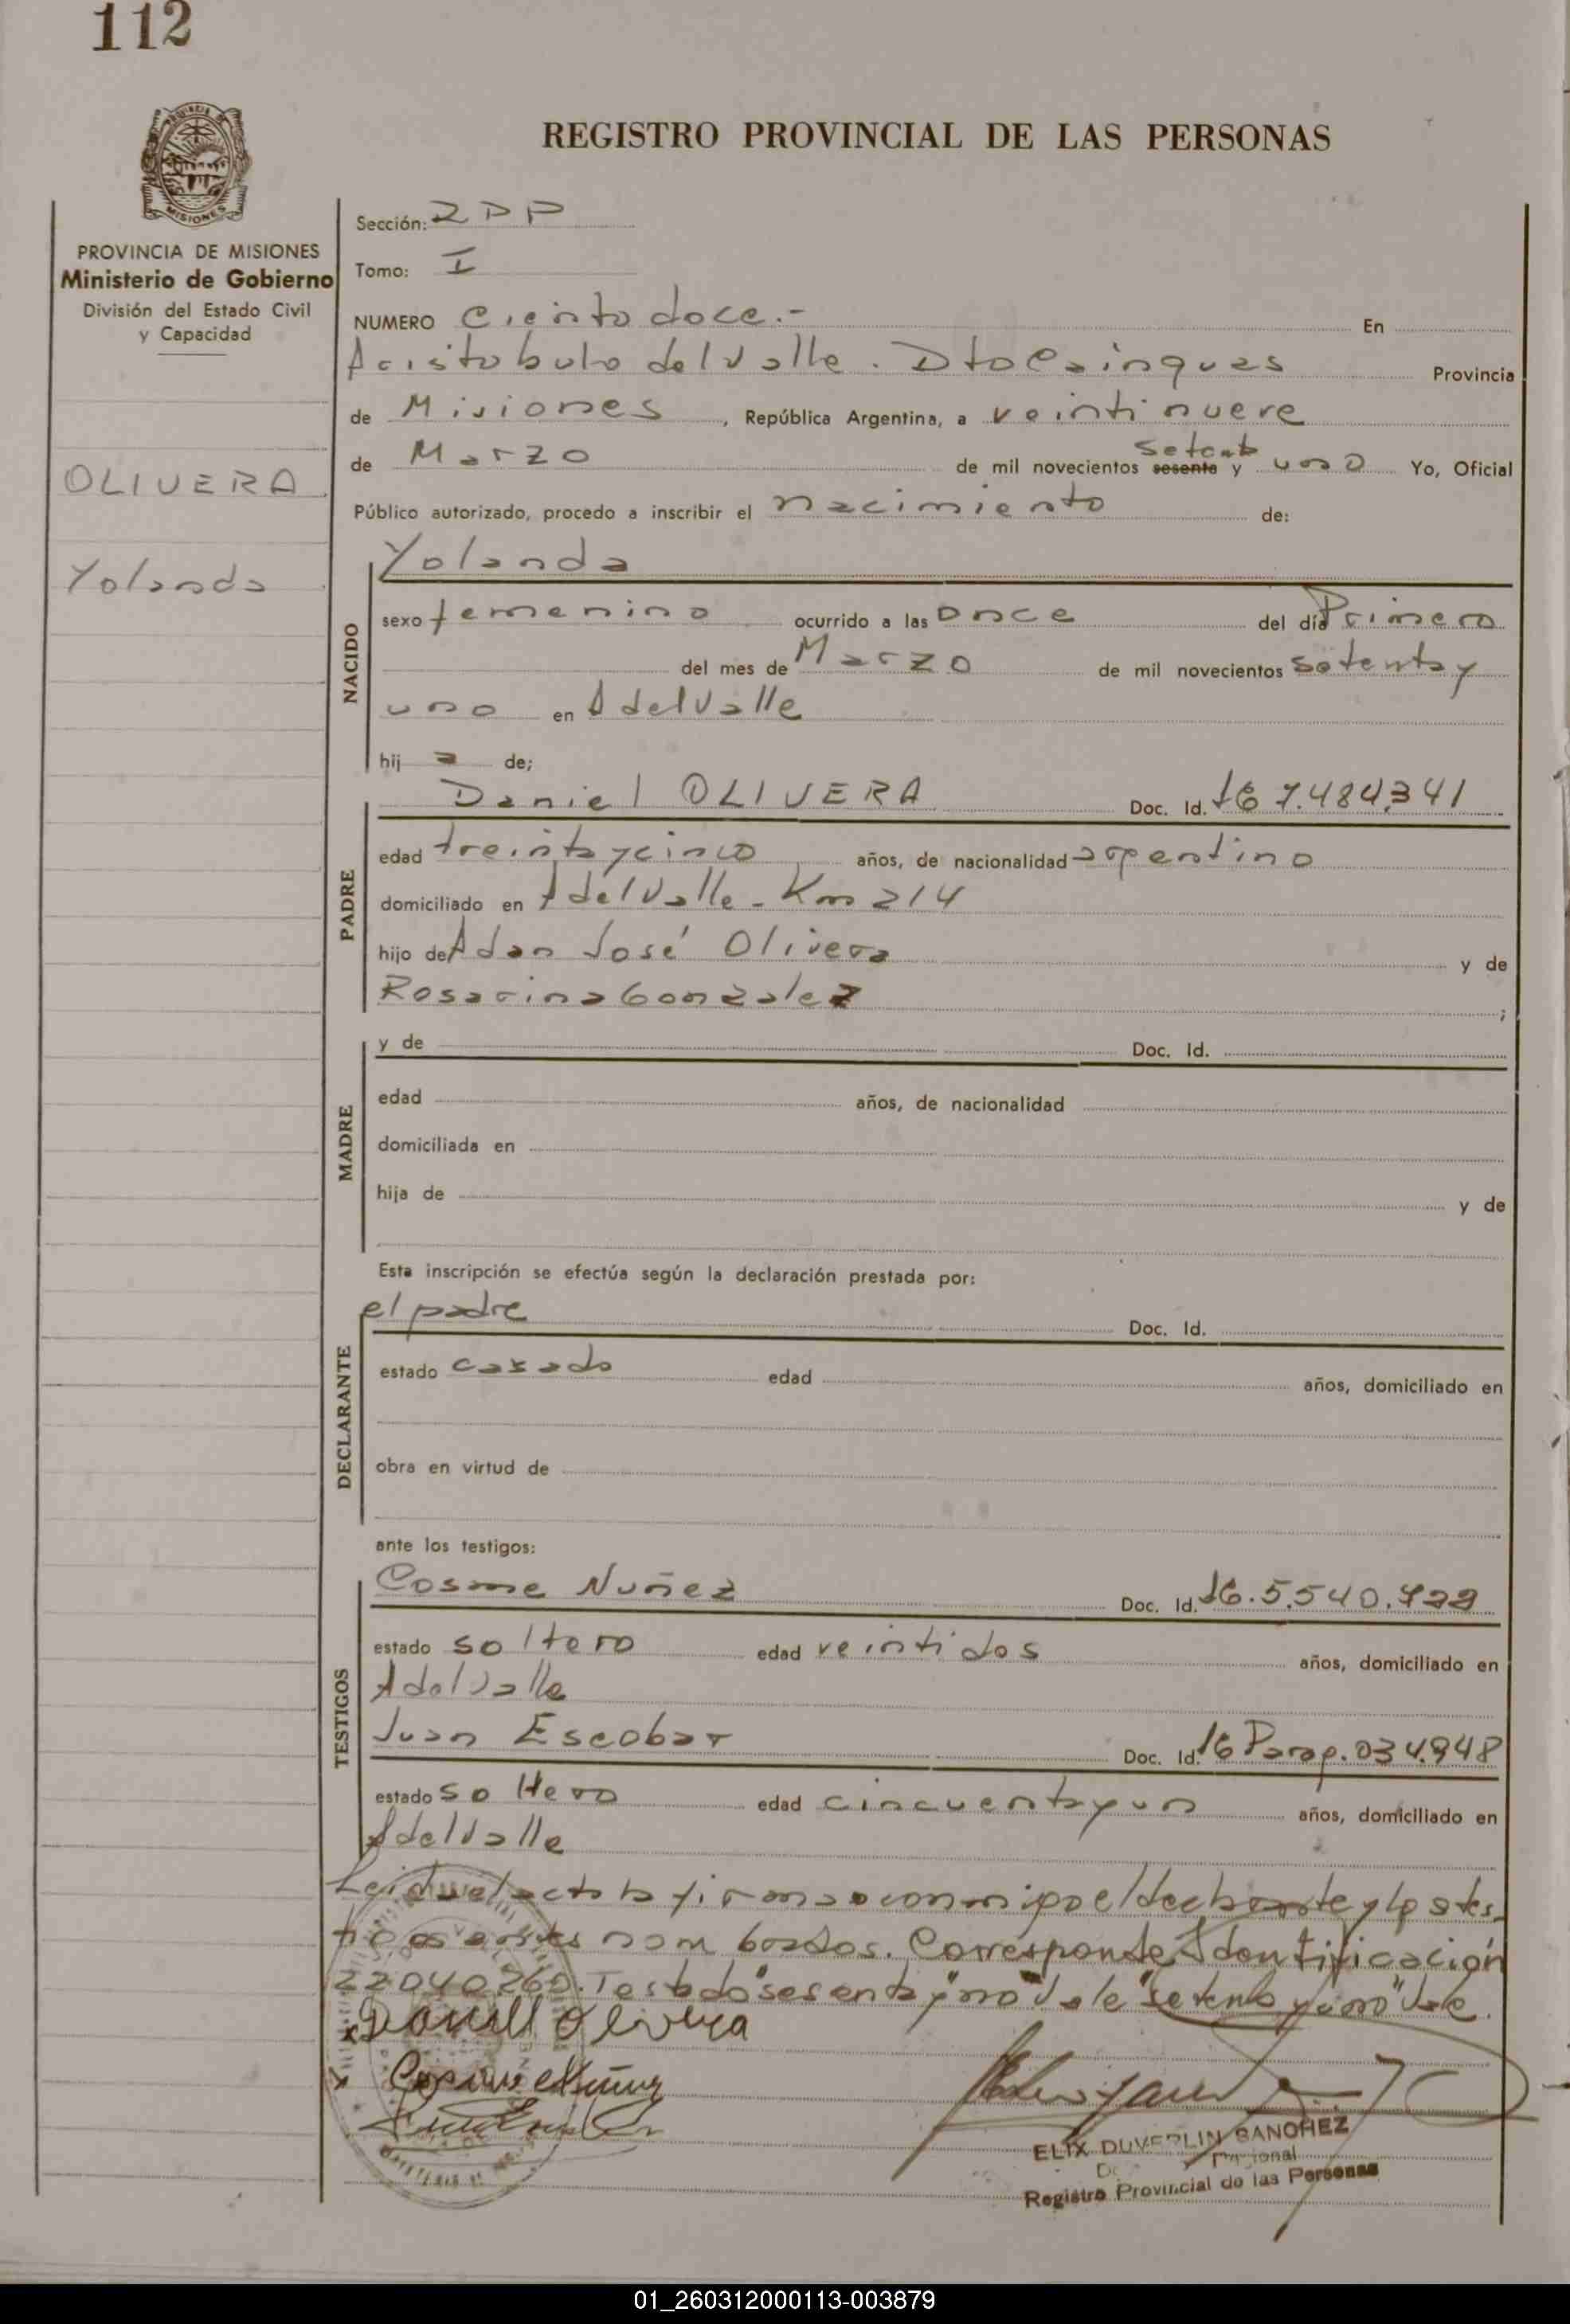 112
REGISTRO PROVINCIAL DE LAS PERSONAS
MISIONES
PROVINCIA DE MISIONES
Ministerio de Gobierno
División del Estado Civil
y Capacidad
OLIVERA
Yolanda
Sección: RPP
Tomo: I
NUMERO Ciento doce.- En
Aristobulo del Valle. Dto Cainguas Provincia
de Misiones, República Argentina, a veintinueve
de Marzo de mil novecientos sesenta setenta y uno Yo, Oficial
Público autorizado, procedo a inscribir el nacimiento de:
NACIDO
Yolanda
sexo femenino ocurrido a las once del día Primero
del mes de Marzo de mil novecientos setenta y
uno en A del Valle
hij a de;
PADRE
Daniel OLIVERA Doc. Id. 7.484.341
edad treinta y cinco años, de nacionalidad argentino
domiciliado en A del Valle - Km 214
hijo de Adan José Olivera y de
Rosarina Gonzalez ;
MADRE
y de Doc. Id.
edad años, de nacionalidad
domiciliada en
hija de y de
Esta inscripción se efectúa según la declaración prestada por:
DECLARANTE
el padre Doc. Id.
estado casado edad años, domiciliado en
obra en virtud de
ante los testigos:
TESTIGOS
Cosme Nuñez Doc. Id. 5.540.722
estado soltero edad veintidos años, domiciliado en
A del Valle
Juan Escobar Doc. Id. Parag. 034.948
estado soltero edad cincuenta y un años, domiciliado en
A del Valle
Leida el acta la firman conmigo el declarante y los tes-
tigos antes nombrados. Corresponde Identificación
22040260. Testado "sesenta y" no "Vale" "setenta y uno" Vale.
Daniel Olivera
Cosme Nuñez
ELIX DUVERLIN SANCHEZ
Registro Provincial de las Personas
01_260312000113-003879